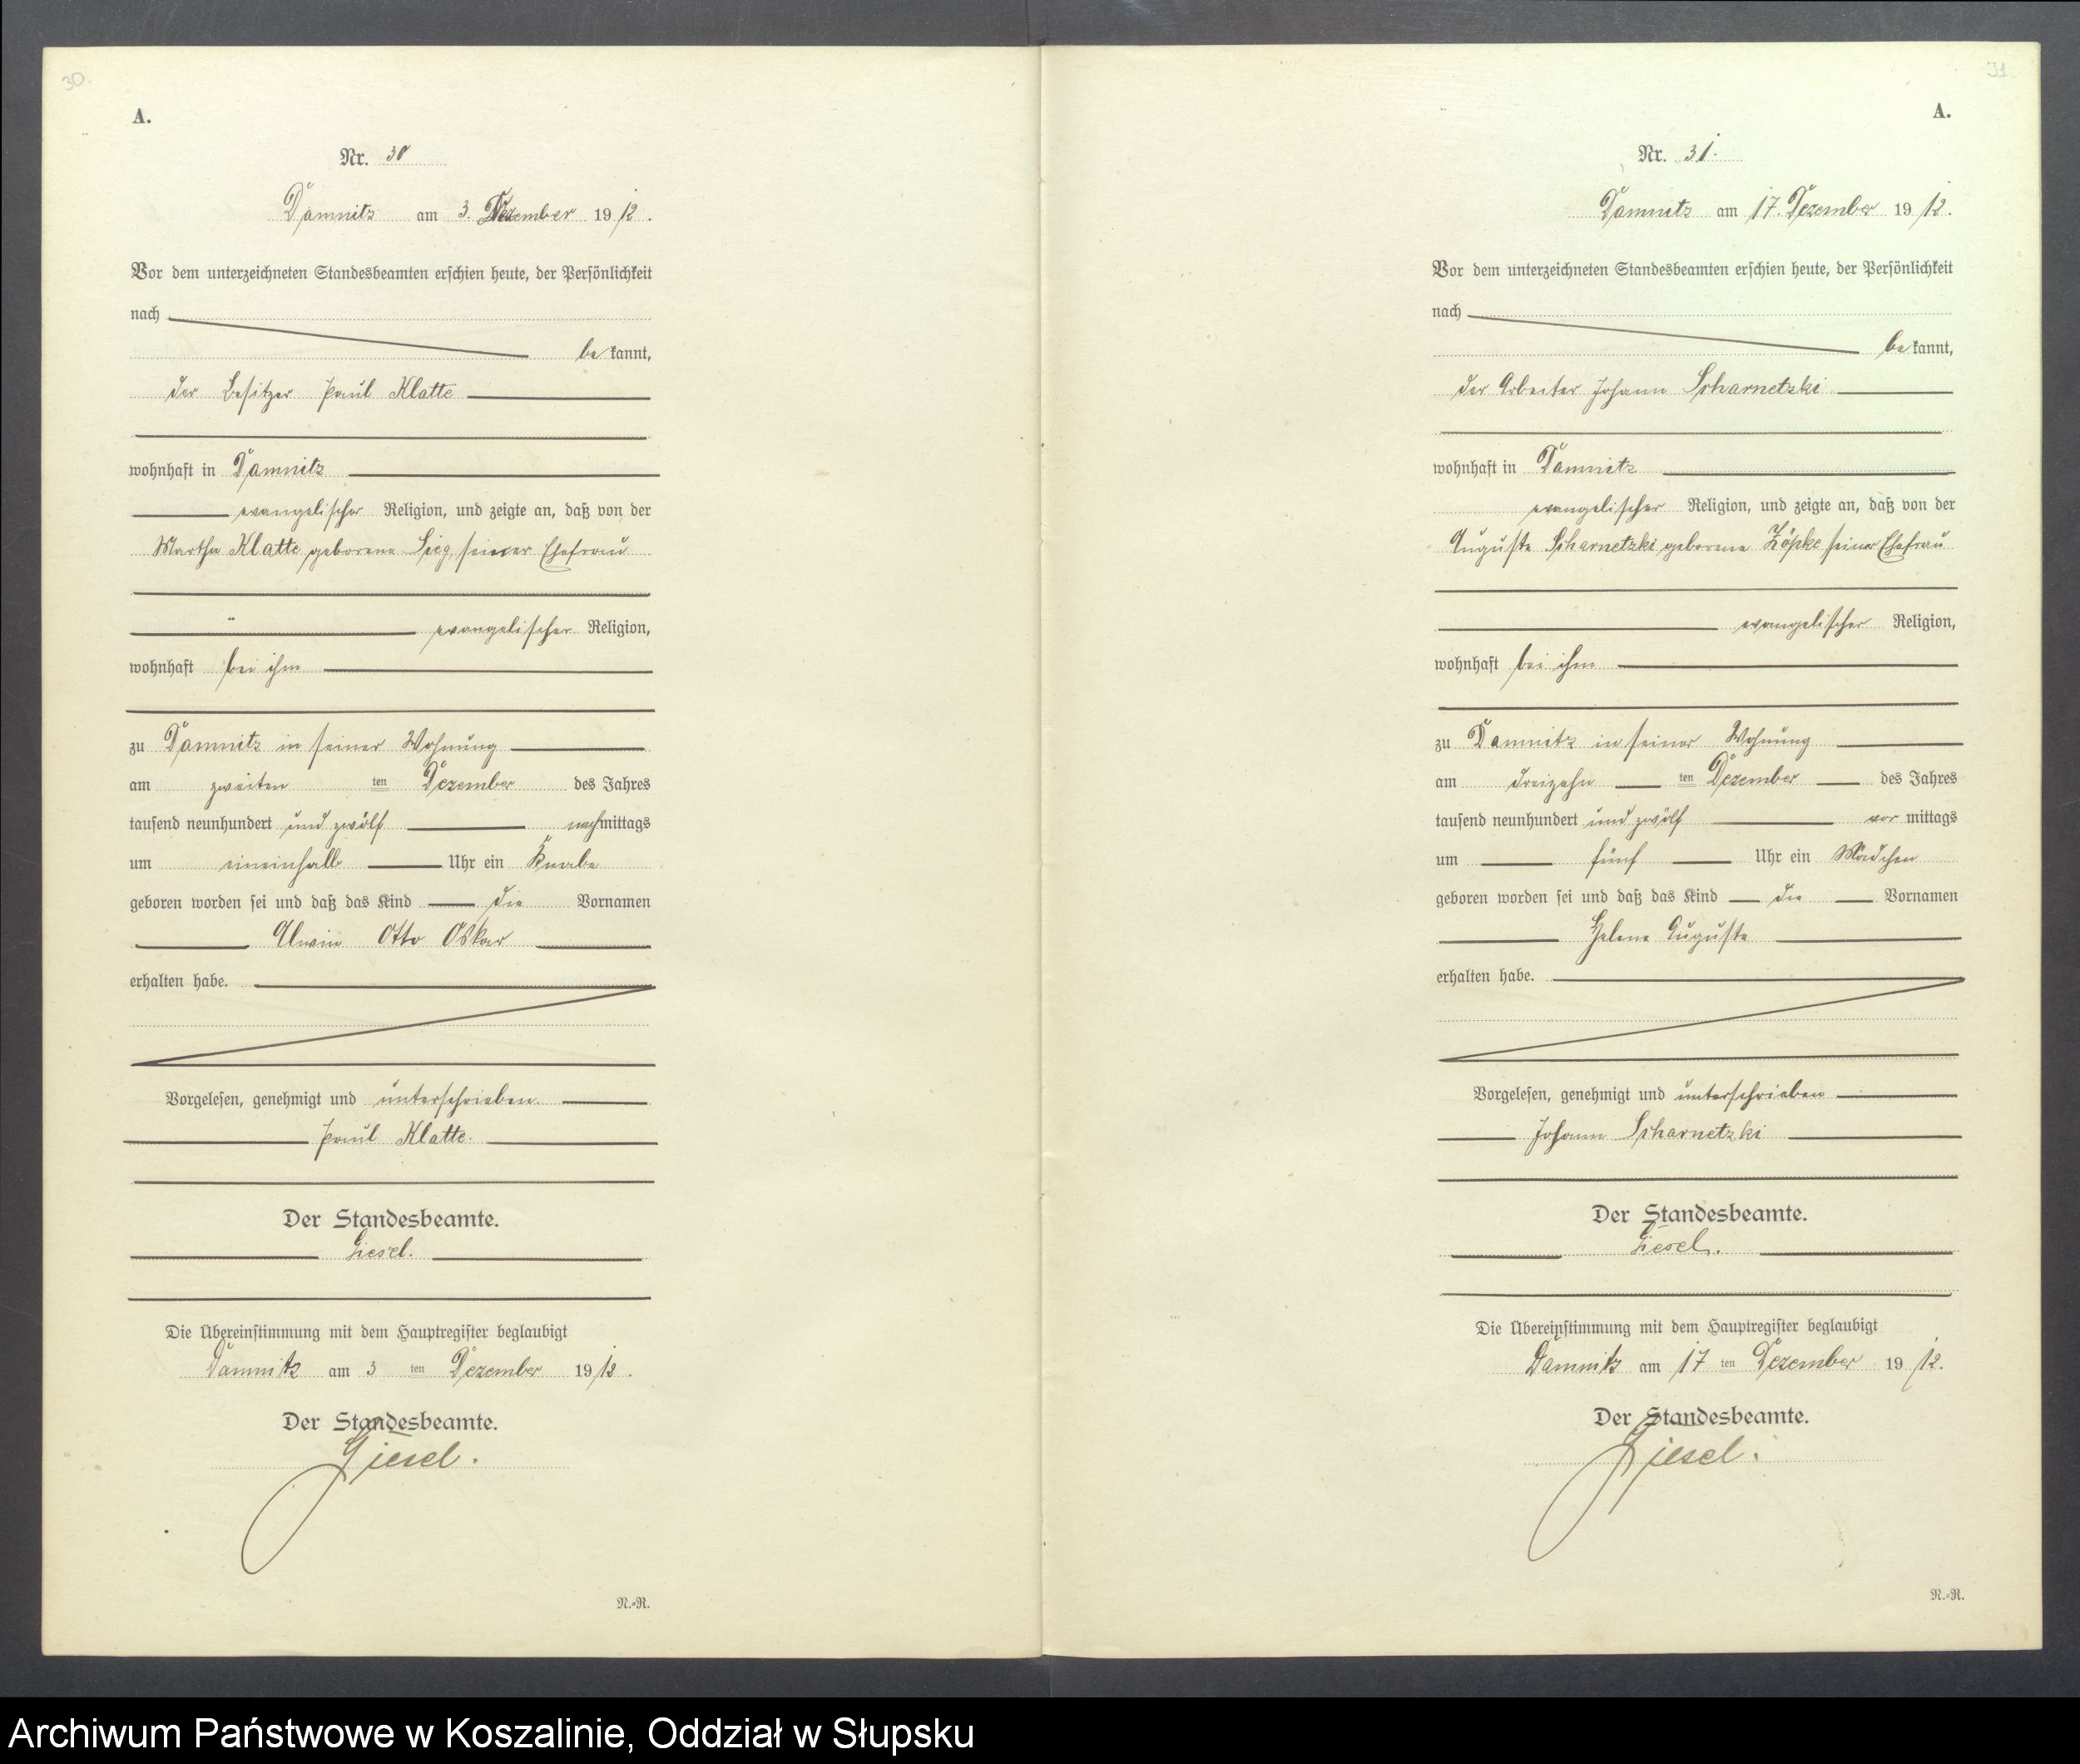 30.
A.
Nr. 30
Damnitz am 3. Dezember 1912.
Vor dem unterzeichneten Standesbeamten erschien heute, der Persönlichkeit
nach
bekannt,
der Besitzer Paul Klatte
wohnhaft in Damnitz
evangelischer Religion, und zeigte an, daß von der
Martha Klatte geborene Sieg, seiner Ehefrau
evangelischer Religion,
wohnhaft bei ihm
zu Damnitz in seiner Wohnung
am zweiten ten Dezember des Jahres
tausend neunhundert und zwölf nachmittags
um eineinhalb Uhr ein Knabe
geboren worden sei und daß das Kind die Vornamen
Alwin Otto Oskar
erhalten habe.
Vorgelesen, genehmigt und unterschrieben.
Paul Klatte.
Der Standesbeamte.
Giesel.
Die Übereinstimmung mit dem Hauptregister beglaubigt
Damnitz am 3 ten Dezember 1912.
Der Standesbeamte.
Giesel.
N.=R.
31.
A.
Nr. 31.
Damnitz am 17. Dezember 1912.
Vor dem unterzeichneten Standesbeamten erschien heute, der Persönlichkeit
nach
bekannt,
der Arbeiter Johann Scharnetzki
wohnhaft in Damnitz
evangelischer Religion, und zeigte an, daß von der
Auguste Scharnetzki geborene Köpke seiner Ehefrau
evangelischer Religion,
wohnhaft bei ihm
zu Damnitz in seiner Wohnung
am dreizehn ten Dezember des Jahres
tausend neunhundert und zwölf vor mittags
um fünf Uhr ein Mädchen
geboren worden sei und daß das Kind die Vornamen
Helene Auguste
erhalten habe.
Vorgelesen, genehmigt und unterschrieben
Johann Scharnetzki
Der Standesbeamte.
Giesel.
Die Übereinstimmung mit dem Hauptregister beglaubigt
Damnitz am 17 ten Dezember 1912.
Der Standesbeamte.
Giesel.
N.=R.
Archiwum Państwowe w Koszalinie, Oddział w Słupsku